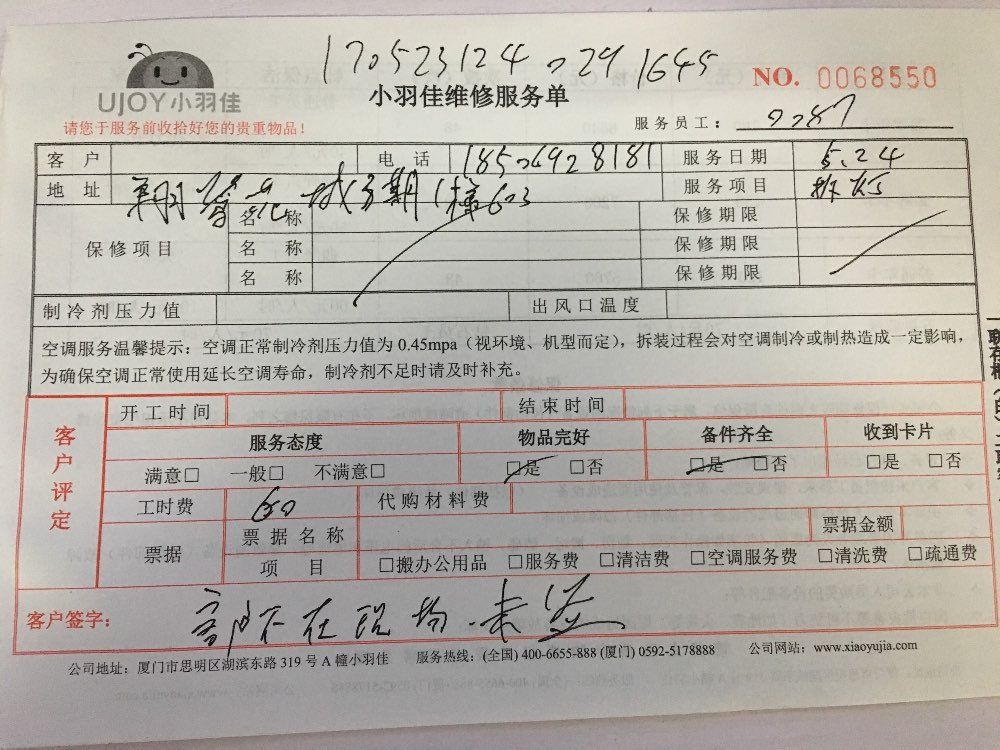 170523124029 1645
UJOY小羽佳
小羽佳维修服务单
NO. 0068550
请您于服务前收拾好您的贵重物品！
服务员工： 0087
客 户 电 话 18504928181 服务日期 5.24
地 址 翔鹭花城 期1幢603 服务项目 拆灯
保修项目
名 称 保修期限
名 称 保修期限
名 称 保修期限
制冷剂压力值 出风口温度
空调服务温馨提示：空调正常制冷剂压力值为 0.45mpa（视环境、机型而定），拆装过程会对空调制冷或制热造成一定影响，
为确保空调正常使用延长空调寿命，制冷剂不足时请及时补充。
客户评定
开工时间 结束时间
服务态度 物品完好 备件齐全 收到卡片
满意□ 一般□ 不满意□ □是 □否 □是 □否 □是 □否
工时费 60 代购材料费
票据 票据名称 票据金额
项 目 □搬办公用品 □服务费 □清洁费 □空调服务费 □清洗费 □疏通费
客户签字： 客户不在现场.未签
公司地址：厦门市思明区湖滨东路 319 号 A 幢小羽佳 服务热线：(全国) 400-6655-888 (厦门) 0592-5178888 公司网站：www.xiaoyujia.com